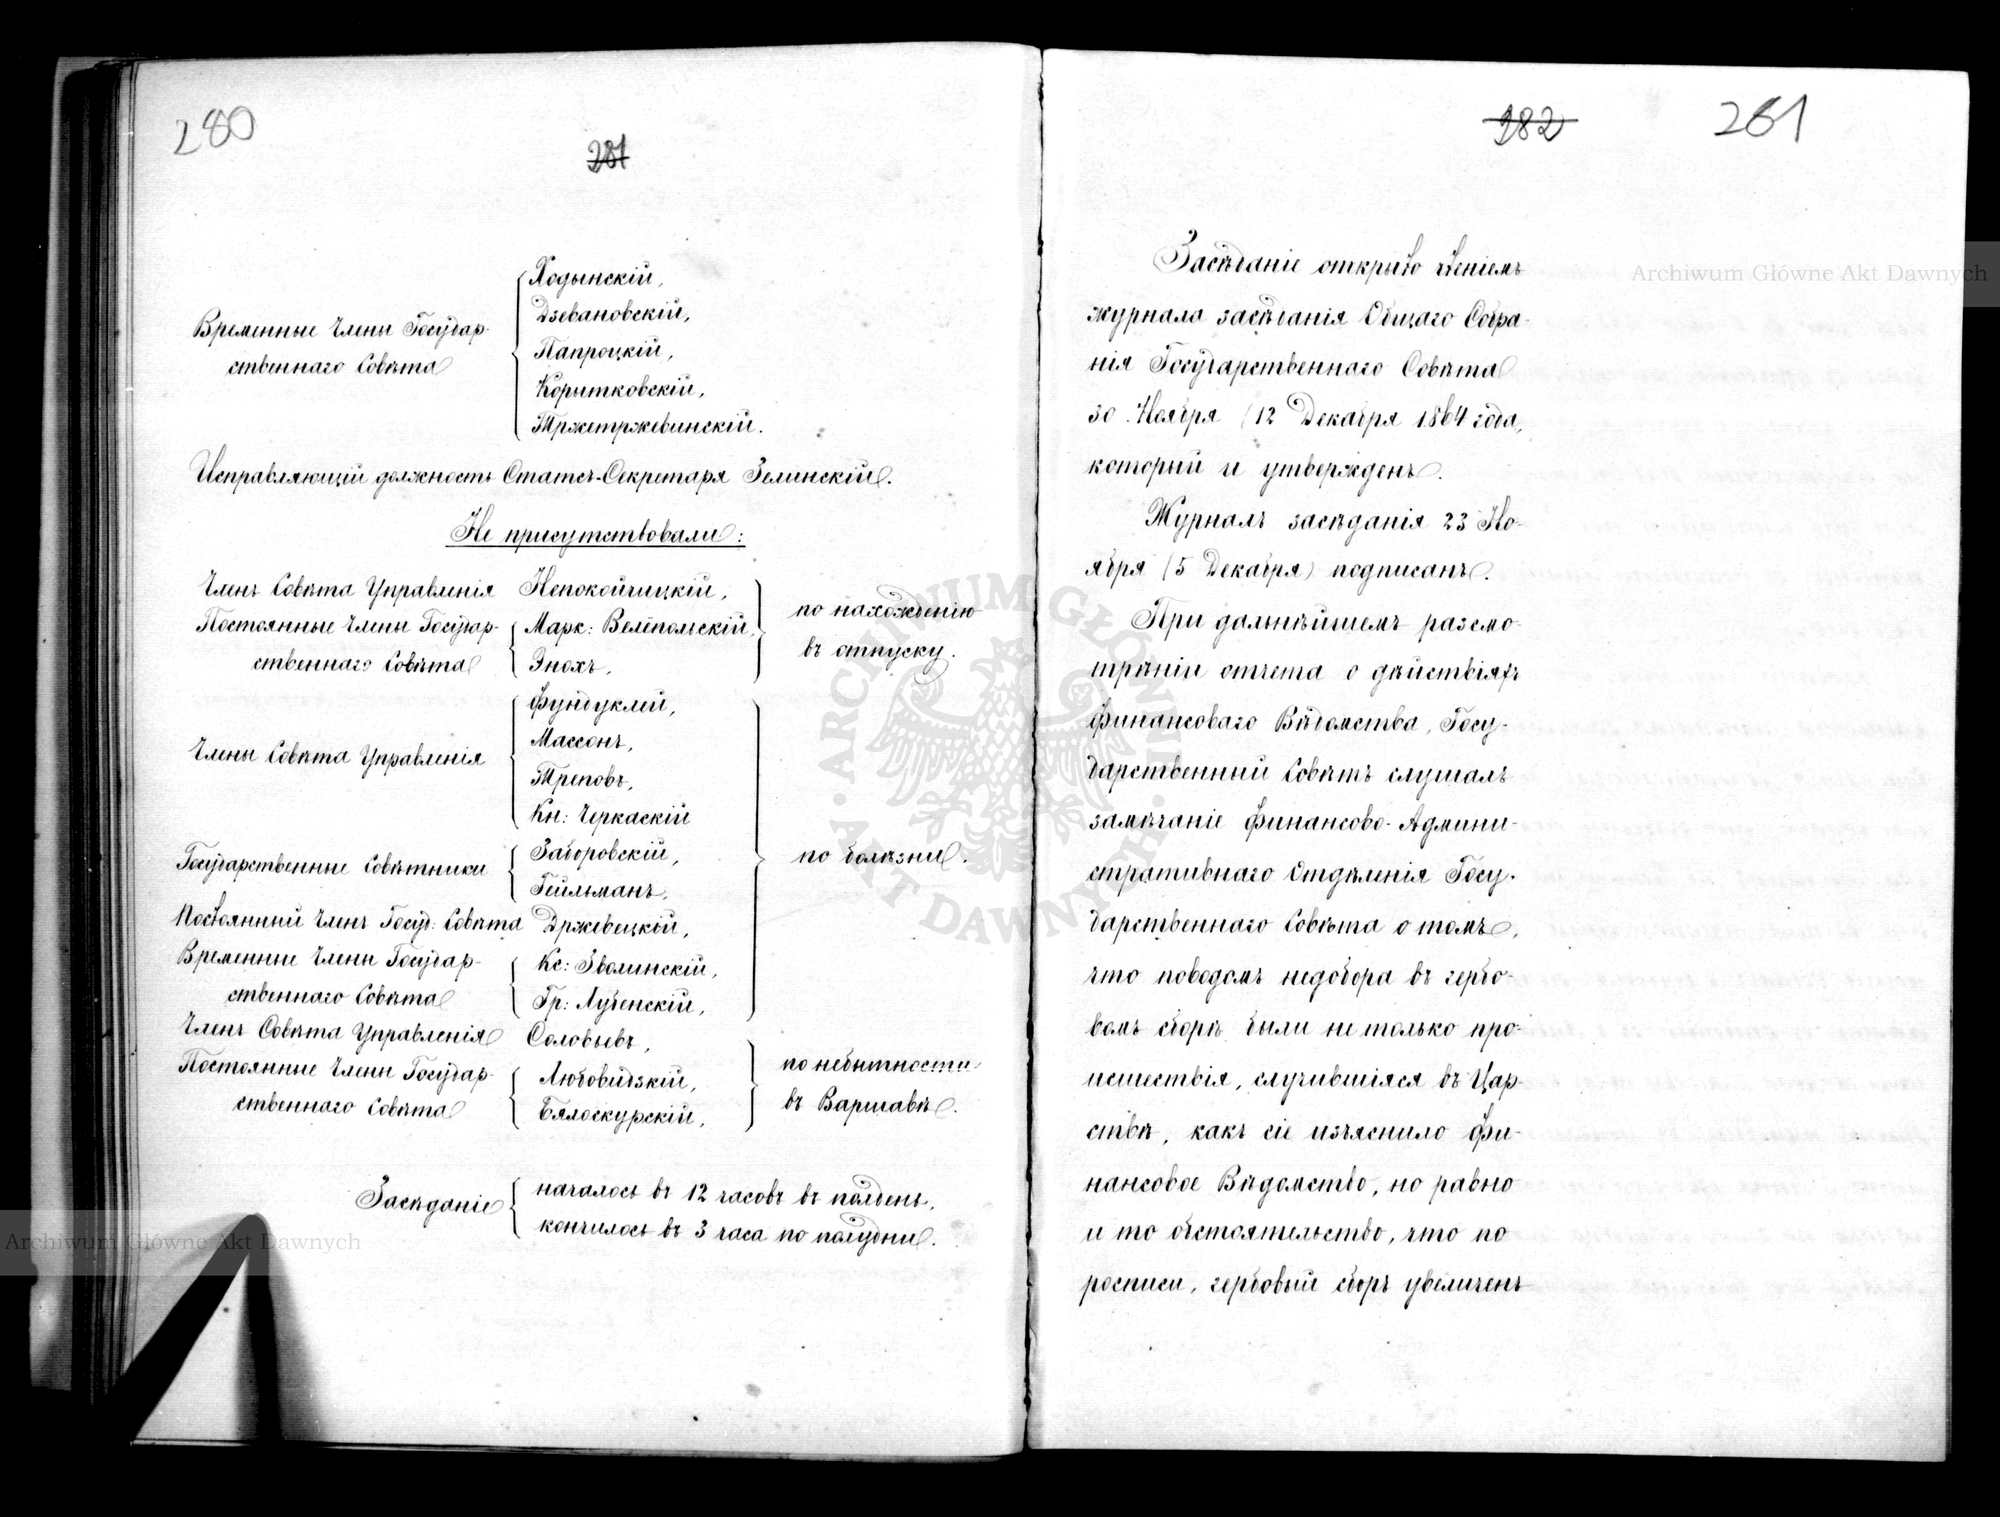 280
281
Временные Члены Государ-
ственнаго Совѣта
Ходынскій,
Дзевановскій,
Папроцкій,
Корытковскій,
Тржетржевинскій.
Исправляющій должность Статсъ-Секретаря Зелинскій.
Не присутствовали:
Членъ Совѣта Управленія Непокойчицкій,
Постоянные Члены Государ-
ственнаго Совѣта
Марк: Велёпольскій,
Энохъ,
по нахожденію
въ отпуску.
Члены Совѣта Управленія
Фундуклей,
Массонъ,
Треповъ,
Кн: Черкаскій
Государственные Совѣтники
Заборовскій,
Гейльманъ,
Постоянный Членъ Госуд: Совѣта Држевецкій,
Временные Члены Государ-
ственнаго Совѣта
Кс: Зволинскій,
Гр: Лубенскій,
по болѣзни.
Членъ Совѣта Управленія Соловьевъ,
Постоянные Члены Государ-
ственнаго Совѣта
Любовидзкій,
Бялоскурскій,
по небытности
въ Варшавѣ.
Засѣданіе
началось въ 12 часовъ въ полдень,
кончилось въ 3 часа по полудни.
282
281
Засѣданіе открыто чтеніемъ
журнала засѣданія Общаго Собра-
нія Государственнаго Совѣта
30 Ноября (12 Декабря 1864 года,
который и утвержденъ.
Журналъ засѣданія 23 Но-
ября (5 Декабря) подписанъ.
При дальнѣйшемъ разсмо-
трѣніи отчета о дѣйствіяхъ
Финансоваго Вѣдомства, Госу-
дарственный Совѣтъ слушалъ
замѣчаніе Финансово-Админи-
стративнаго Отдѣленія Госу-
дарственнаго Совѣта о томъ,
что поводомъ недобора въ гербо-
вомъ сборѣ были не только про-
исшествія, случившіяся въ Цар-
ствѣ, какъ сіе изъяснило Фи-
нансовое Вѣдомство, но равно
и то обстоятельство, что по
росписи, гербовый сборъ увеличенъ
Archiwum Główne Akt Dawnych
Archiwum Główne Akt Dawnych
ARCHIWUM GŁÓWNE AKT DAWNYCH